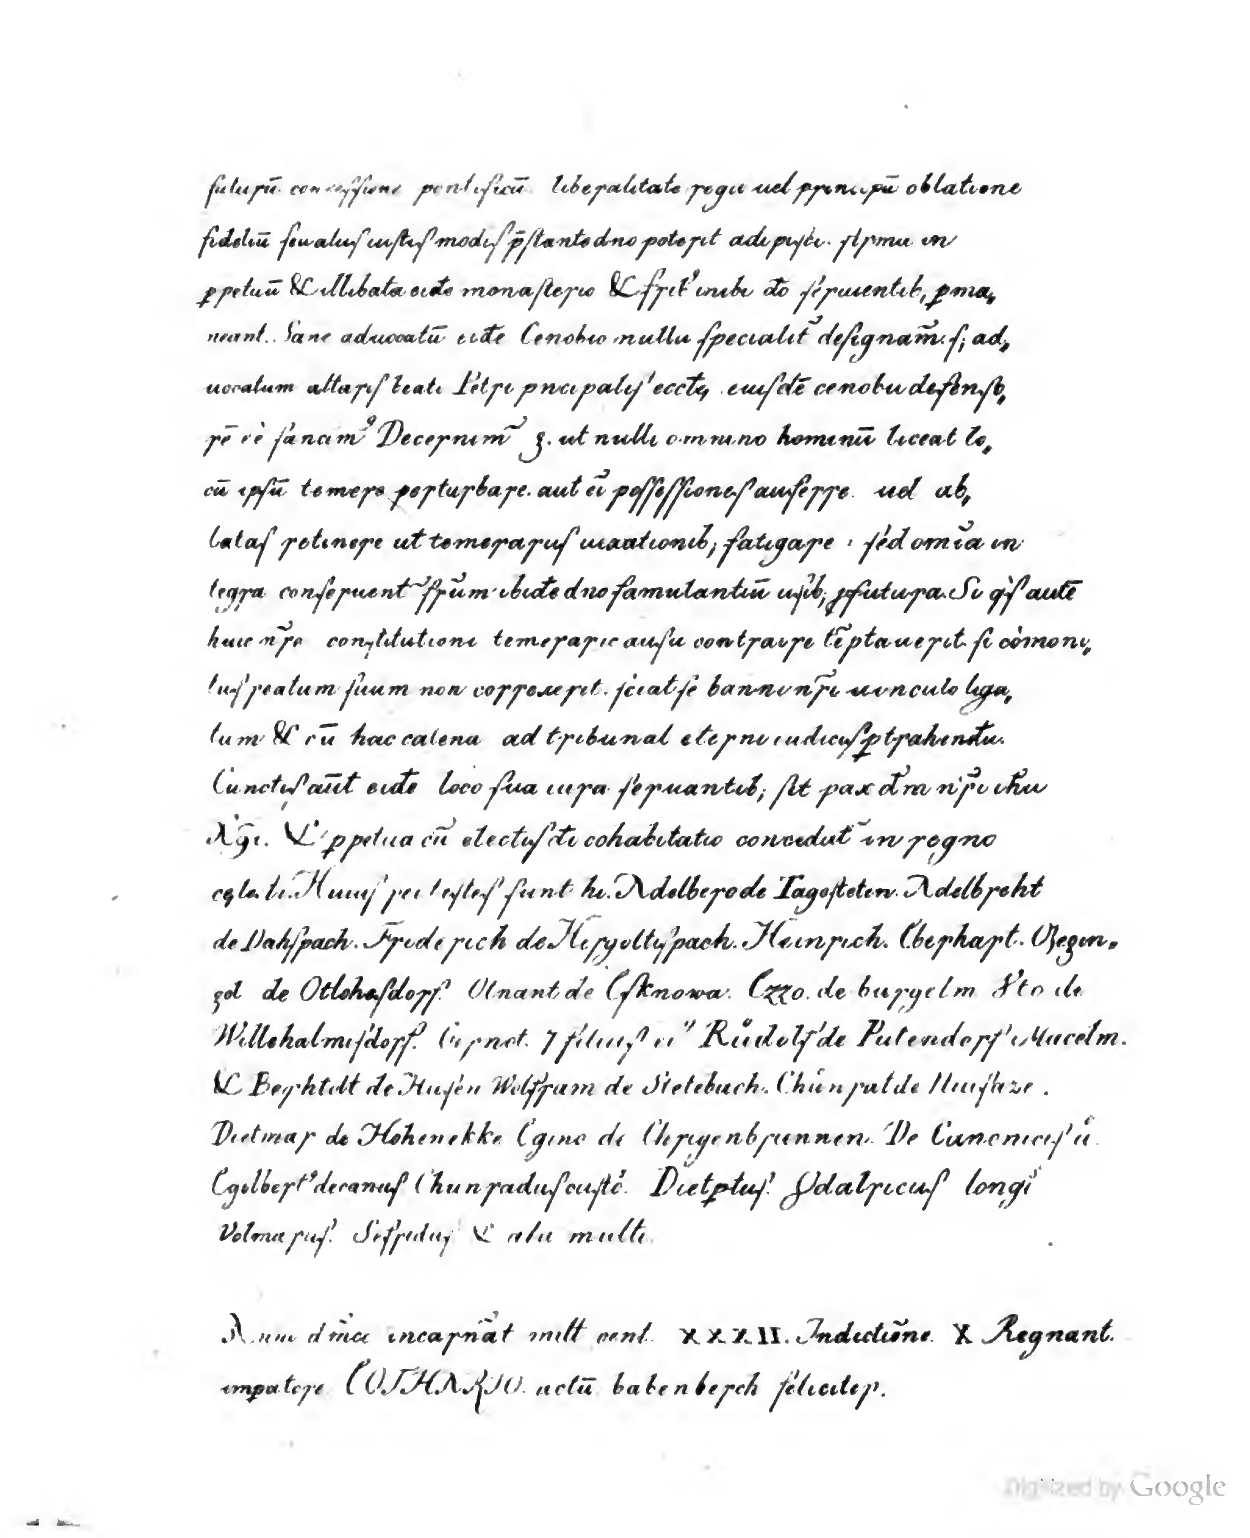 futurū concessione pontificū liberalitate regū uel principū oblatione
fideliū seu aliis iustis modis p̄stante dno poterit adipisci. firma in
ꝑpetuū & illibata eidē monasterio & fr̄ib; inibi dō seruientib; ꝑma„
neant.. Sane aduocatū eidē Cenobio nullū specialit̄ designam̄. s; ad„
uocatum altaris beati Petri pncipalis eccle, eiusdē cenobii defenso„
rē eē sancim⁹ Decernim⁹ g. ut nulli omnino hominū liceat lo„
cū ipsū temere perturbare. aut ei possessiones auferre. uel ab„
latas retinere ut temerariis uexationib; fatigare. sed omīa in
tegra conseruent̄ fr̄um ibidē dno famulantiū usib; ꝓfutura. Si q̇s autē
huic nr̄e constitutioni temerario ausu contraire tēptauerit. si cōmoni„
tus reatum suum non correxerit. sciat se banni nr̄i uinculo liga„
tum & cū hac catena ad tribunal eterni iudicis ꝑtrahendū.
Cunctis aūt eidē loco sua iura seruantib; sit pax dn̄i nr̄i ihu
Xp̄i. & ꝑpetua cū electis di cohabitatio concedat̄ in regno
cęlesti. Huius rei testes sunt hi. Adelbero de Tagesteten. Adelbreht
de Dahspach. Friderich de Hergoltispach. Heinrich. Eberhart. Regin„
gol de Otlohesdorf. Ulnant de Esknowa. Ezzo. de burgelin Otto de
Willehalmisdorf. Gernot. 7 filius ei⁹ Růdolf de Putendorf
& Berhtolt de Husen Wolfram de Stetebach. Chůnrat de
Dietmar de Hohenekke Egino de Chrigenbrunnen. De Canonicis ů.
Egilbert⁹ decanus Chunradus custos. Dietꝑtus. Ŏdalricus longꝰ
Volmarus. Sefridus & alii multi.
Anno dn̄ice incarnāt mill cent. XXXII. Indictiōne. X Regnant.
impatore LOTHARIO. actū babenberch feliciter.
Digitized by Google